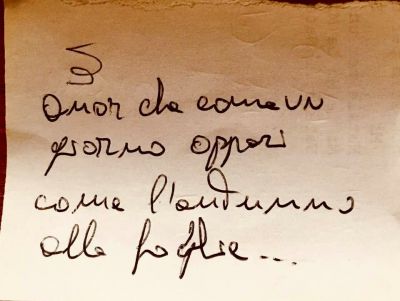 amor che come un
giorno appari
come l'autunno
alle foglie...